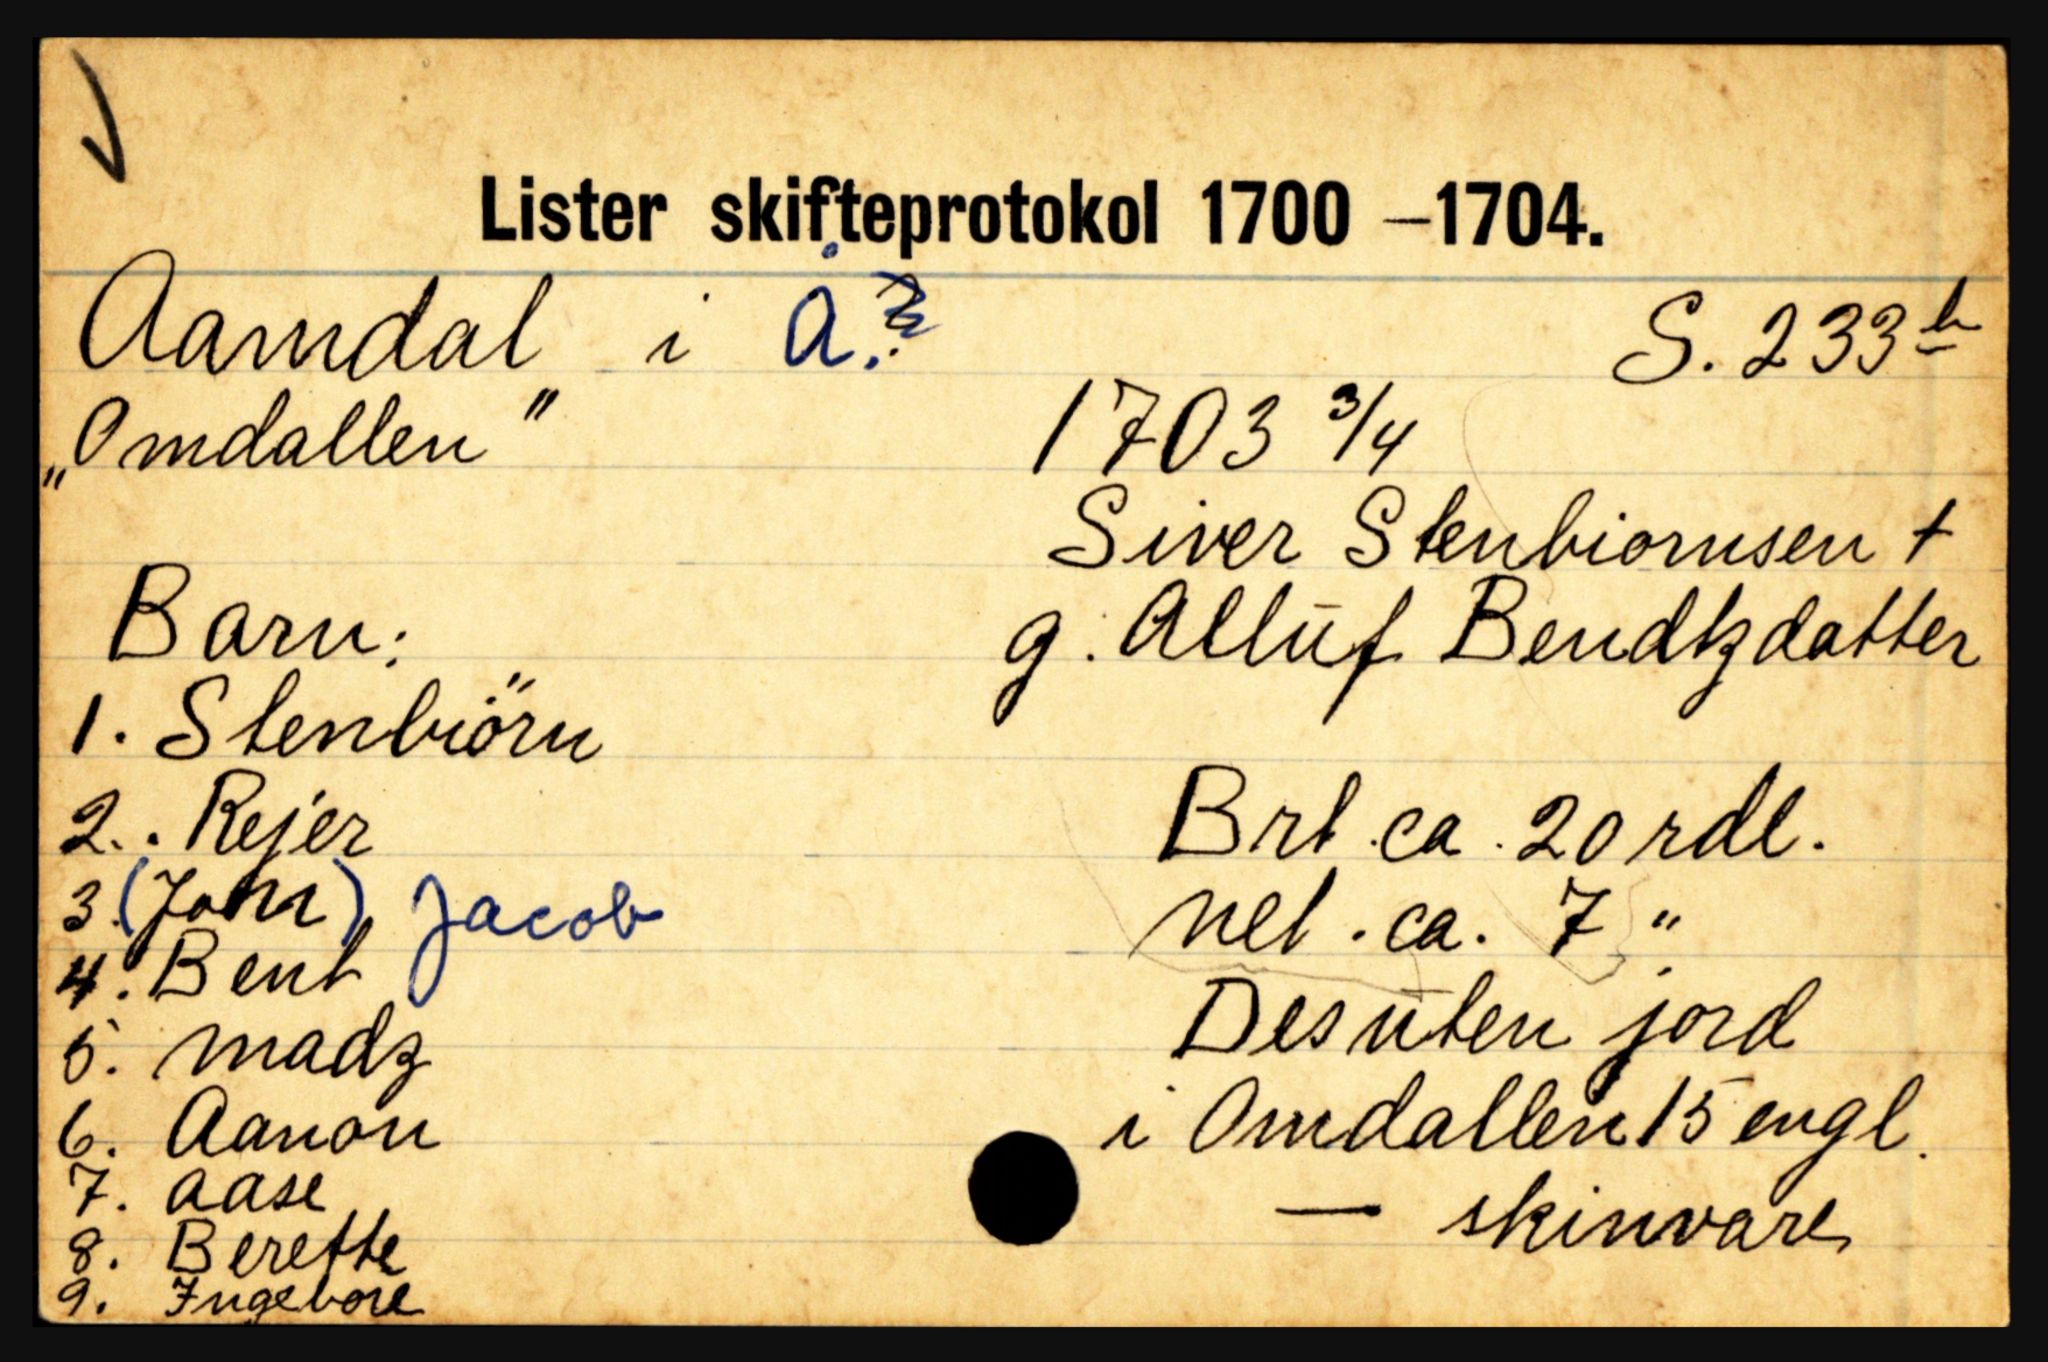 Lister skifteprotokol 1700 –1704.
Aamdal i Å.
S. 233 b
„Omdallen"
1703 3/4
Siver Stenbiornsen †
g. Alluf Bendtzdatter
Barn:
1. Stenbiörn
2. Rejer
3. (John) Jacob
4. Bent
5. Madz
6. Aanon
7. Aase
8. Berette
9. Ingebore
Brt. ca. 20 rdl.
net. ca. 7 "
Desuten jord
i Omdallen 15 engl.
— skinvare